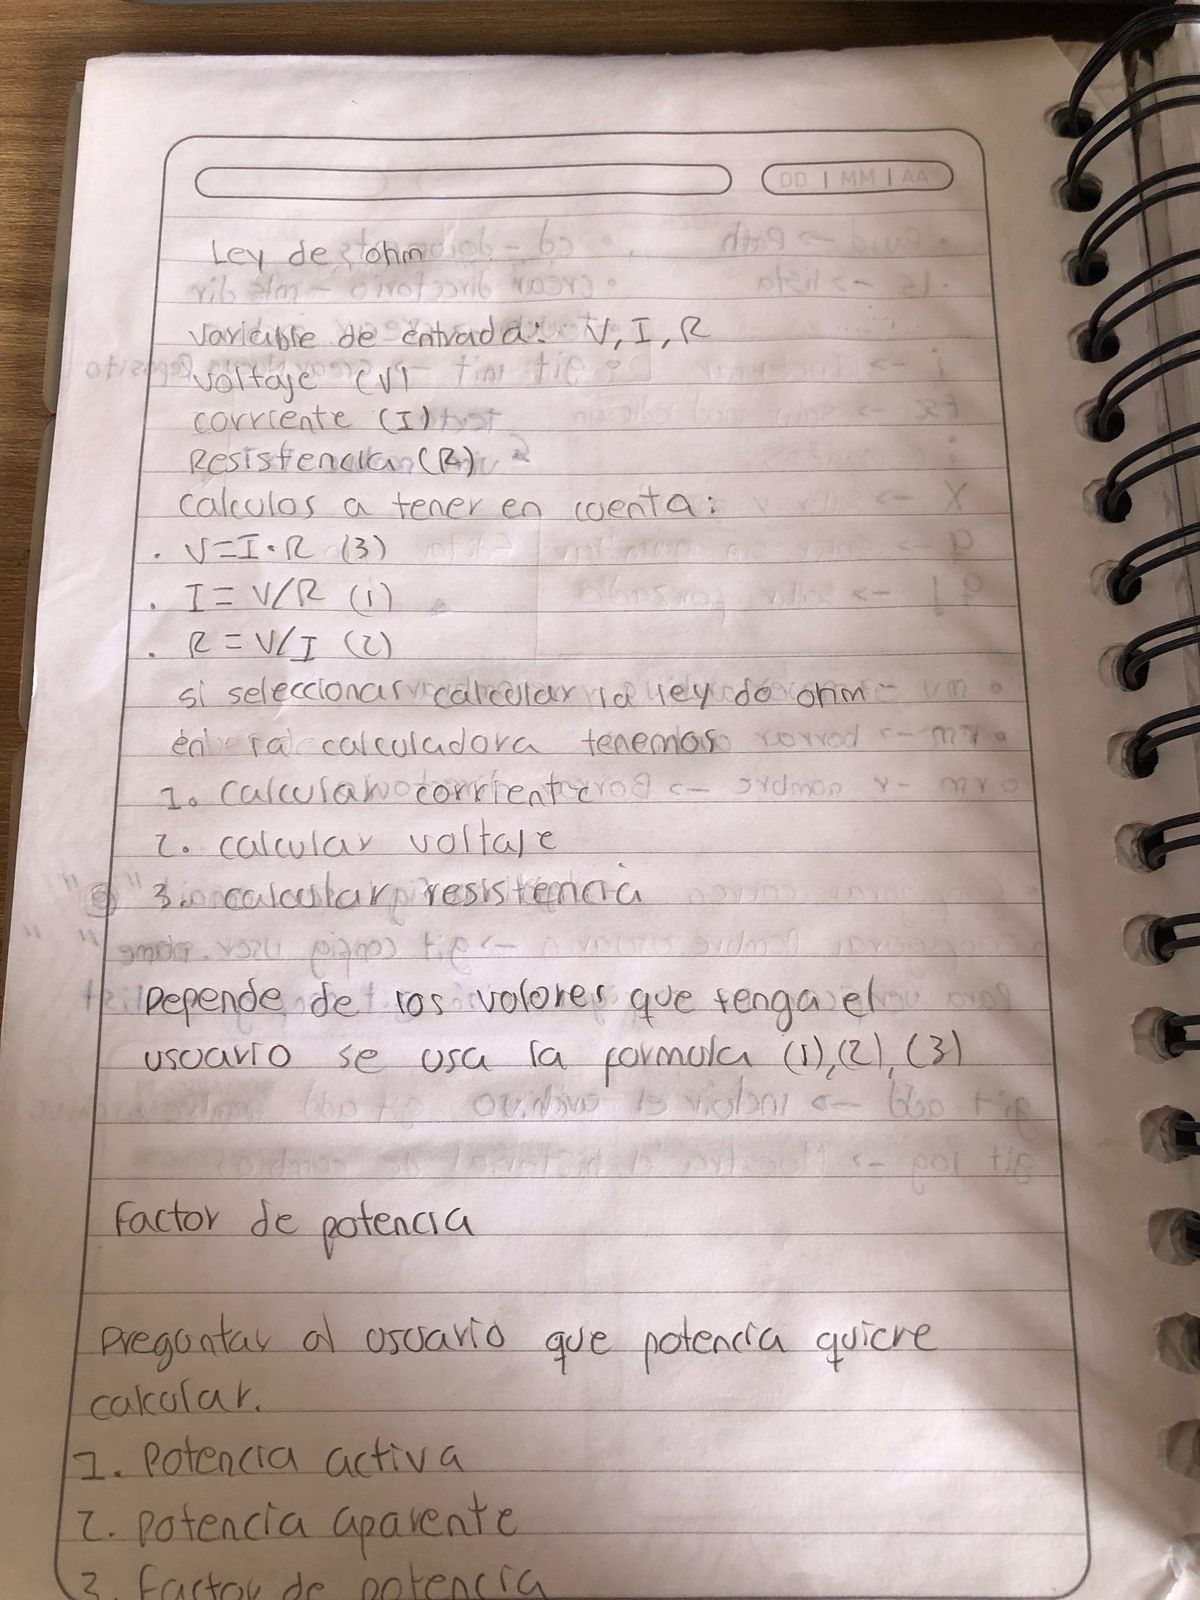 DD | MM | AA
Ley de ohm
variable de entrada: V, I, R
voltaje (V)
corriente (I)
Resistencia (R)
calculos a tener en cuenta:
. V=I·R (3)
. I= V/R (1)
. R = V/I (2)
si seleccionar calcular la ley de ohm
en la calculadora tenemos
1. calcular corriente
2. calcular voltaje
3. calcular resistencia
Depende de los valores que tenga el
usuario se usa la formula (1), (2), (3)
Factor de potencia
Preguntar al usuario que potencia quiere
calcular.
1. Potencia activa
2. potencia aparente
3. Factor de potencia